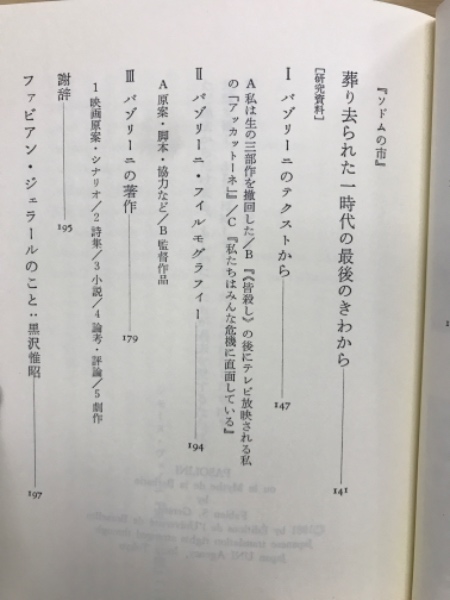 『ソドムの市』
葬り去られた一時代の最後のきわから 141
[研究資料]
I パゾリーニのテクストから 147
A 私は生の三部作を撤回した／B『《皆殺し》の後にテレビ放映される私
の「アッカットーネ」』／C『私たちはみんな危機に直面している』
II パゾリーニ・フィルモグラフィー 194
A 原案・脚本・協力など／B 監督作品
III パゾリーニの著作 179
1 映画原案・シナリオ／2 詩集／3 小説／4 論考・評論／5 劇作
謝辞 195
ファビアン・ジェラールのこと：黒沢惟昭 197